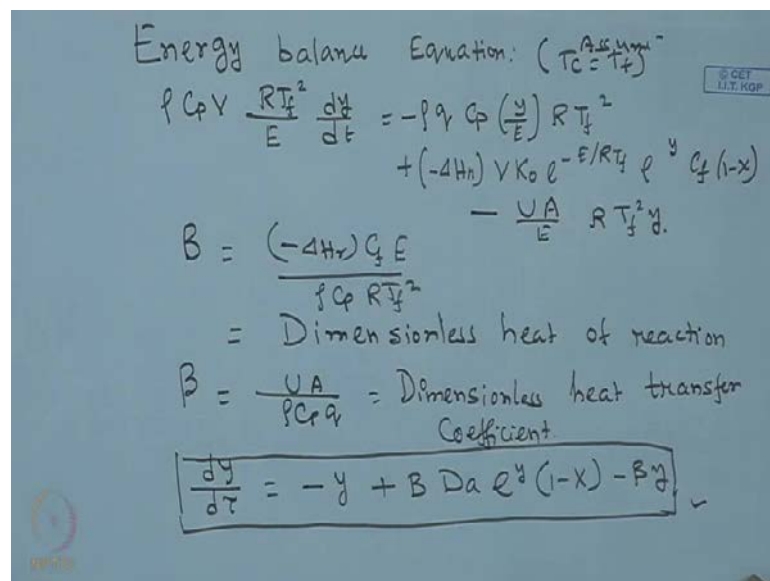 Energy balance Equation: (Assume Tc = Tf)
ρ Cp V RTf²/E dy/dt = -ρ q Cp (y/E) R Tf²
+ (-ΔHr) V K0 e^(-E/RTf) e^y Cf (1-x)
- UA/E R Tf² y.
B = (-ΔHr) Cf E / ρ Cp RTf²
= Dimensionless heat of reaction
β = UA / ρ Cp q = Dimensionless heat transfer
Coefficient.
dy/dτ = -y + B Da e^y (1-x) - βy
© CET
I.I.T. KGP